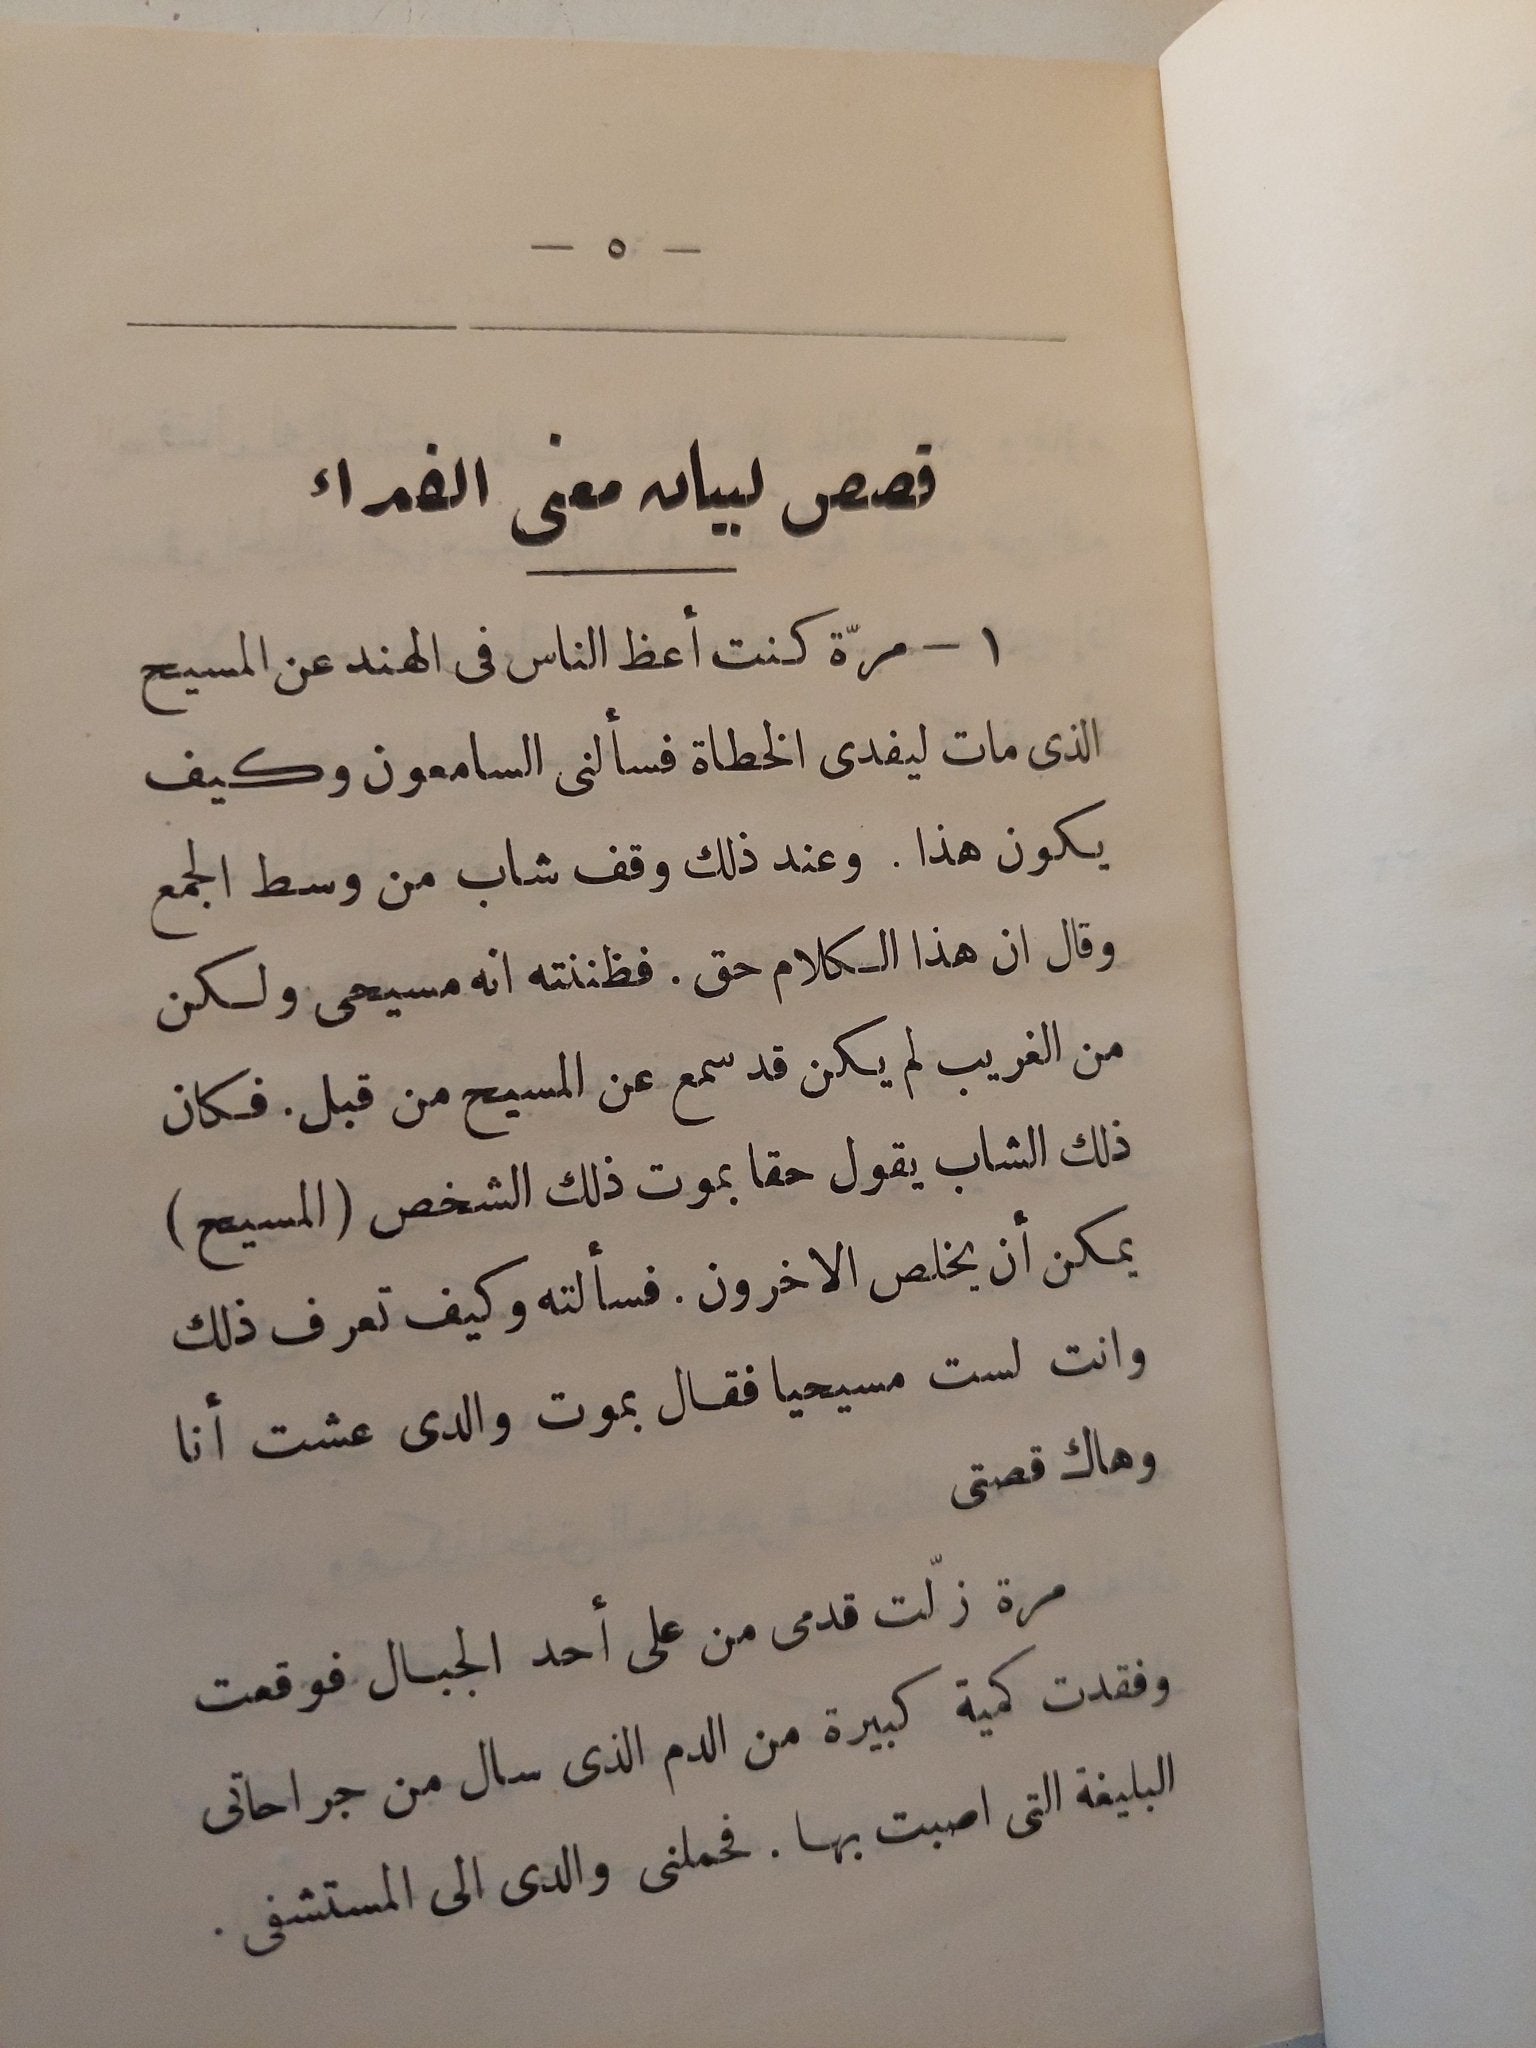 — ٥ —
قصص لبيان معنى الفداء
١ – مرّة كنت أعظ الناس فى الهند عن المسيح
الذى مات ليفدى الخطاة فسألنى السامعون وكيف
يكون هذا . وعند ذلك وقف شاب من وسط الجمع
وقال ان هذا الكلام حق . فظننته انه مسيحى ولكن
من الغريب لم يكن قد سمع عن المسيح من قبل . فكان
ذلك الشاب يقول حقا بموت ذلك الشخص ( المسيح )
يمكن أن يخلص الاخرون . فسألته وكيف تعرف ذلك
وانت لست مسيحيا فقال بموت والدى عشت أنا
وهاك قصتى
مرة زلّت قدمى من على أحد الجبال فوقعت
وفقدت كمية كبيرة من الدم الذى سال من جراحاتى
البليغة التى اصبت بها . فحملنى والدى الى المستشفى .